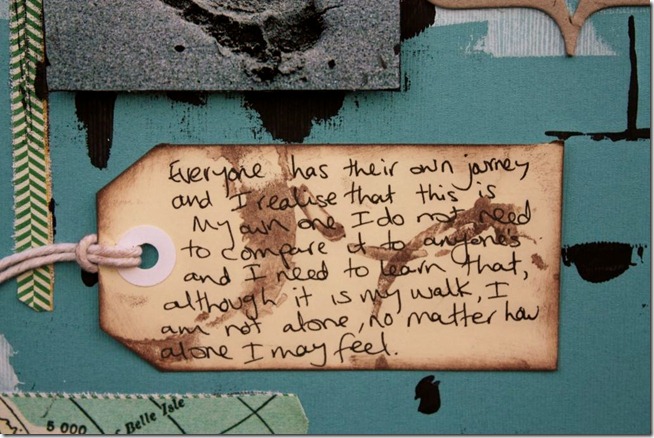 Everyone has their own journey
and I realise that this is
My own one I do not need
to compare it to anyone's
and I need to learn that,
although it is my walk, I
am not alone, no matter how
alone I may feel.
5 000
Belle Isle